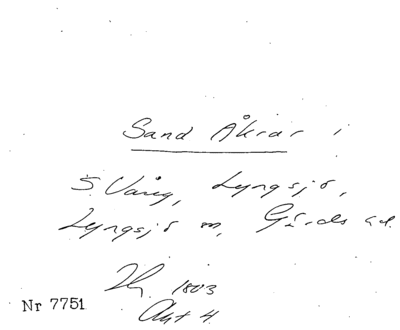 Sand Åkrar i
S. Vång, Lyngsjö,
Lyngsjö m, Gärds hd.
1803
Akt 4.
Nr 7751